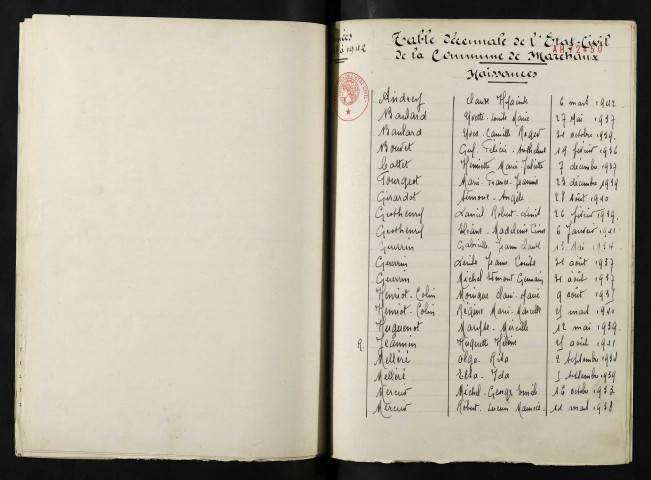 nées
à 1942
Table décennale de l'Etat-Civil
de la Commune de Marchaux
Naissances
Andrey Claude Hyacinthe 6 mars 1942
Baulard Yvette Louise Marie 27 Mai 1937
Baulard Yves Camille Roger 31 octobre 1939
Bouvet 19 février 1936
Cattet Henriette Marie Juliette 7 décembre 1937
Fourgeot Marie France Jeannine 23 décembre 1939
Girardot Simone Angèle 28 Août 1940
Grosthenry Daniel Robert 26 février 1939
Grosthenry Madeleine 6 Janvier 1941
Guerrin Gabrielle Jeanne 13 Mai 1934
Guerrin Jeanne 31 août 1937
Guerrin Michel Edmont Germain 31 août 1937
Henriot-Colin Monique Marie 9 août
Henriot-Colin Régine Marie Marcelle mars 1940
Huguenot Maryse Mireille 12 mai 1939
R. Jeannin Huguette Hélène août 1941
Melléré Olga Rita 2 septembre
Melléré Elsa Ida septembre 1939
Mercier Michel George 16 octobre
Mercier Robert Lucien Maurice 11 mars 1938